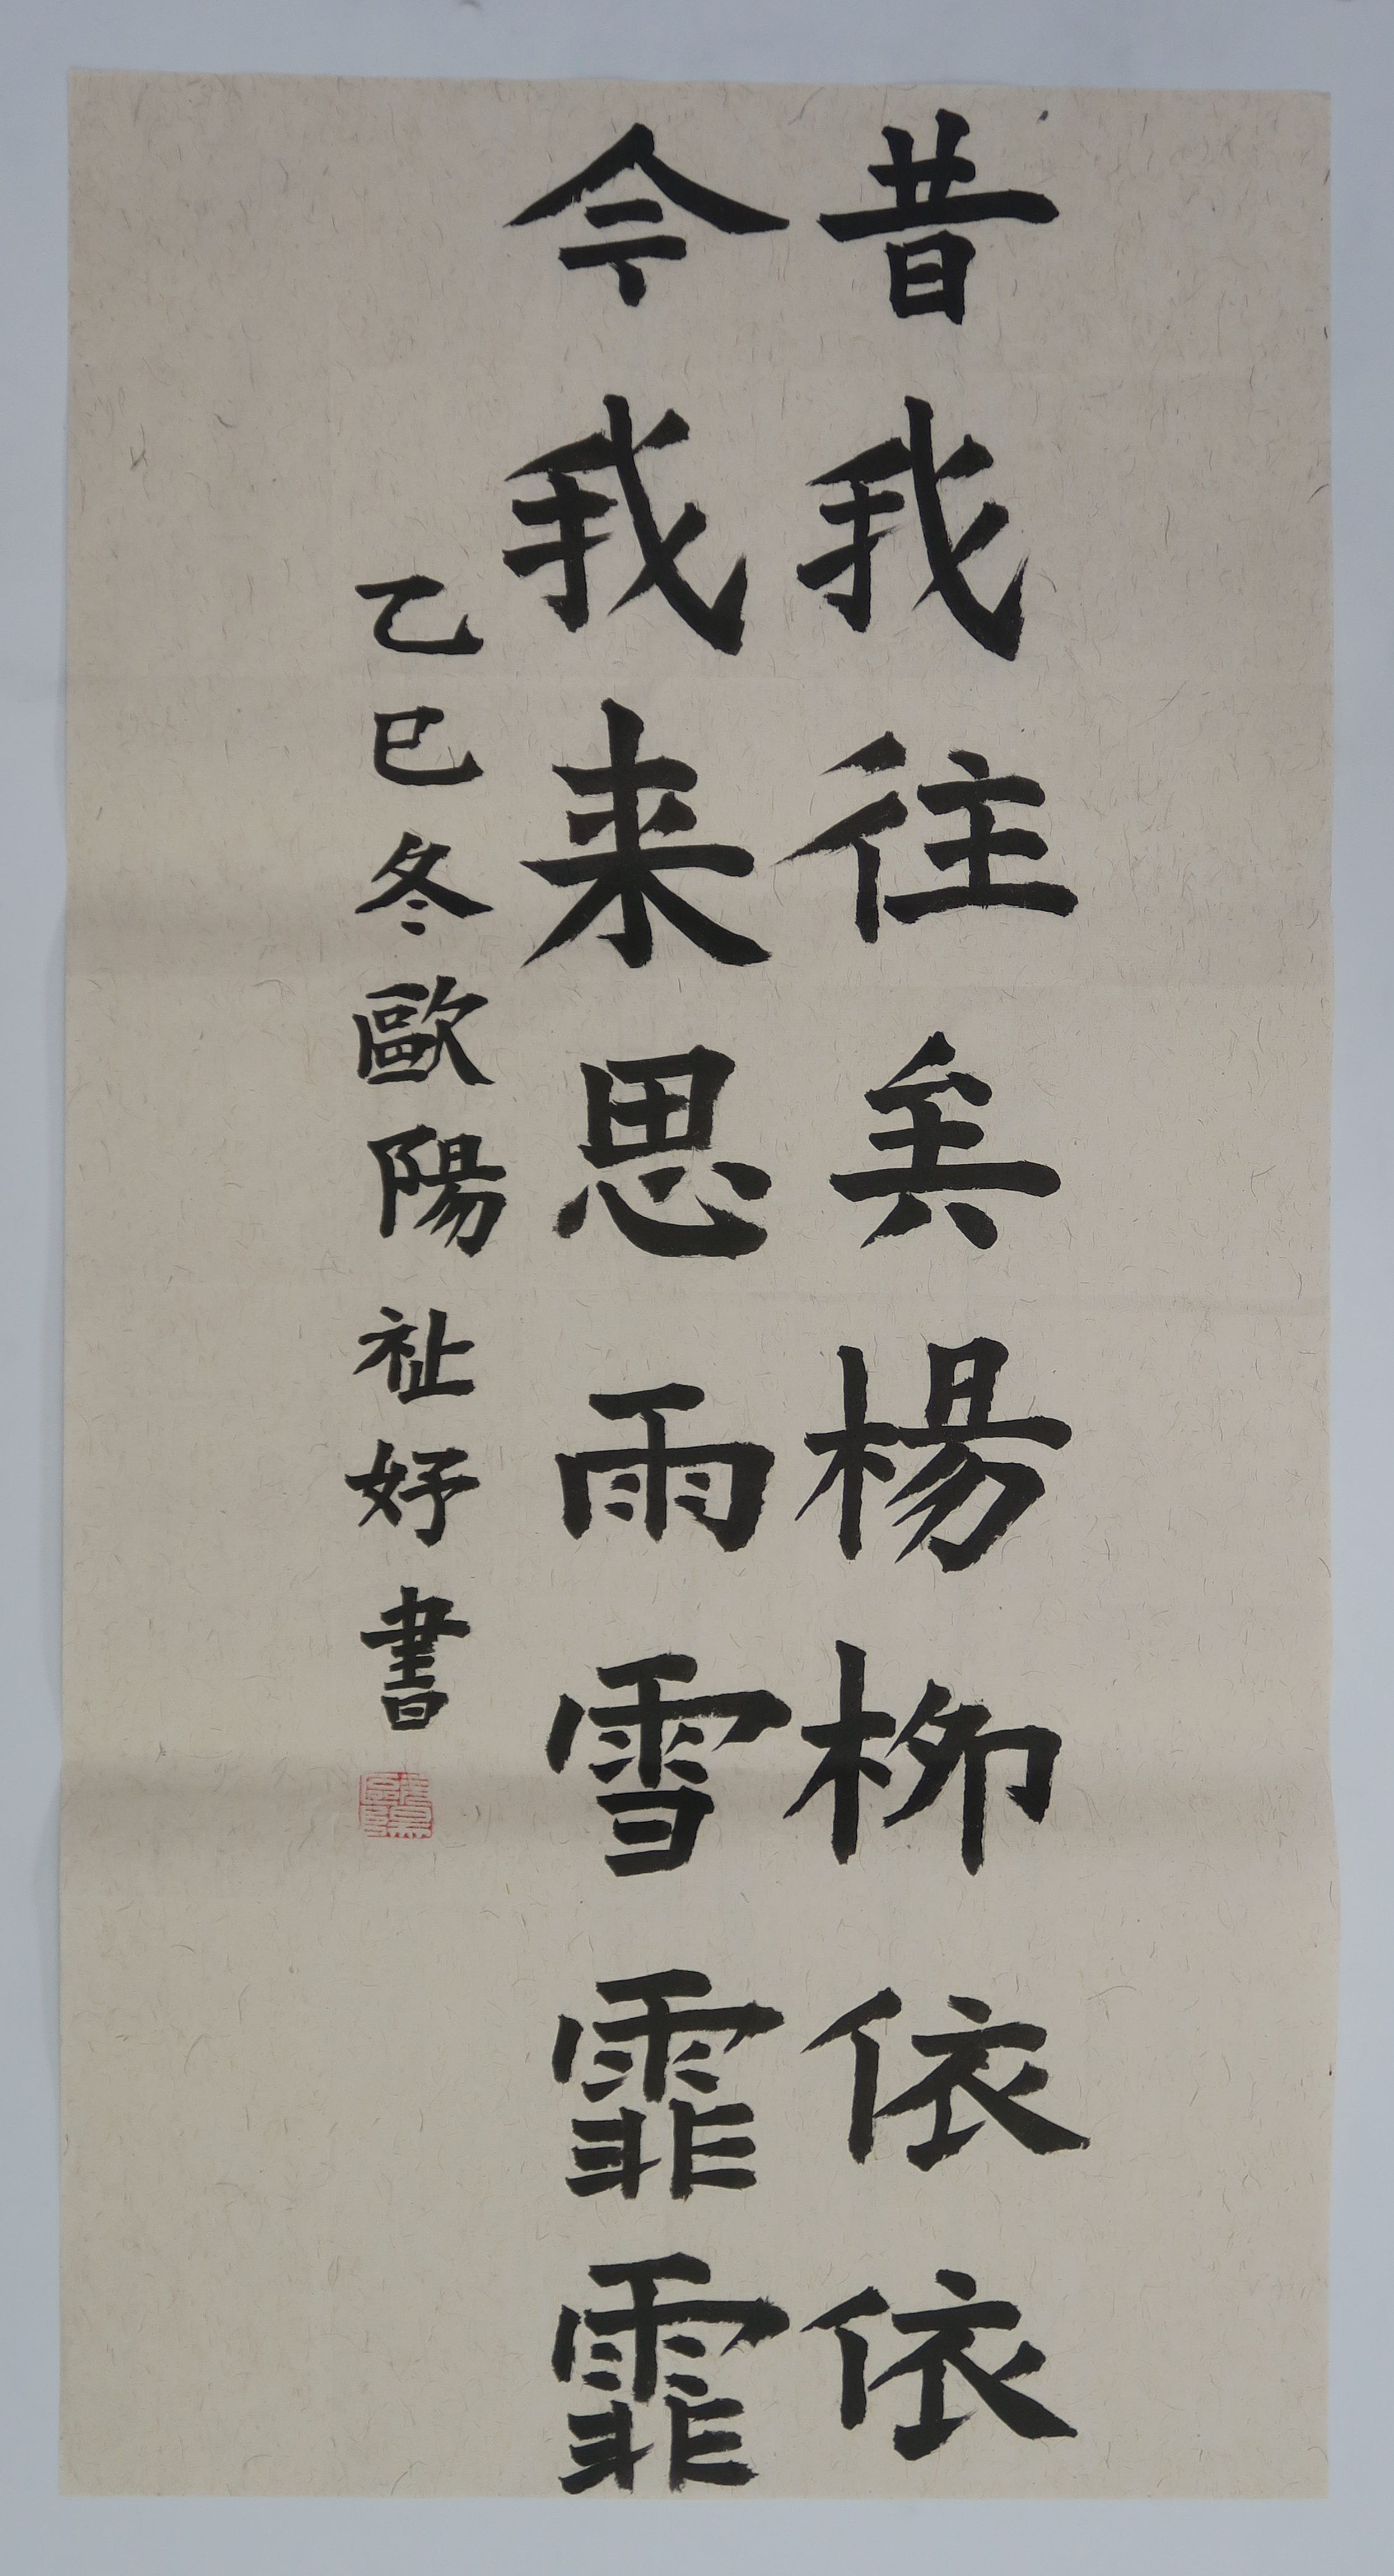 昔我往矣楊柳依依
今我来思雨雪霏霏
乙巳冬歐陽祉妤書